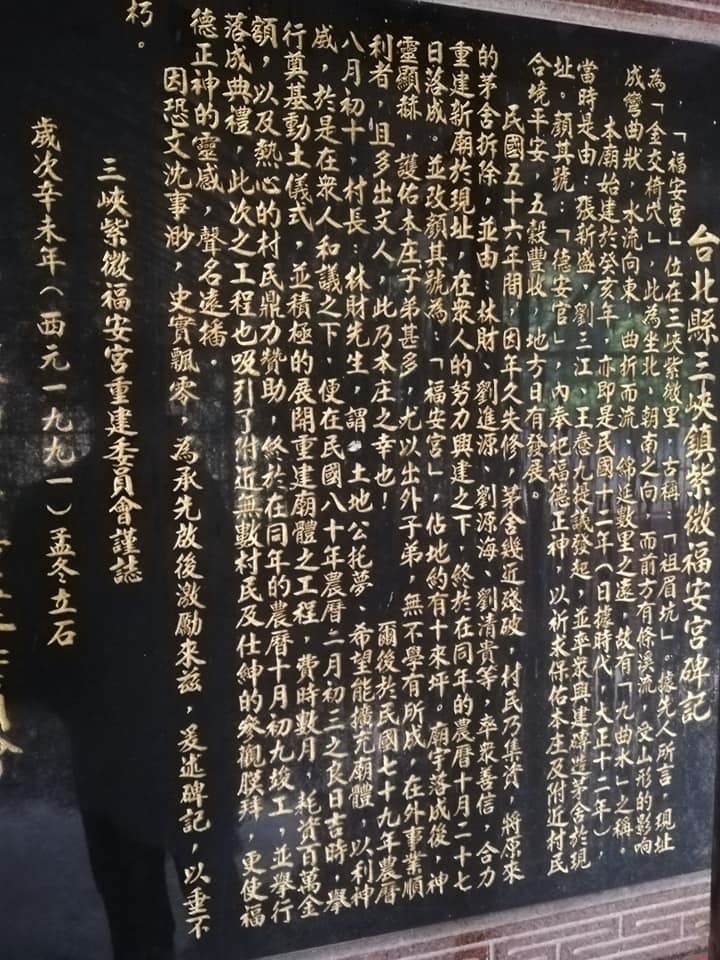 台北縣三峽鎮紫微福安宮碑記
「福安宮」位在三峽紫微里，古稱：「祖眉坑」。據先人所言，現址
為「金交椅穴」，此為坐北　朝南之向，而前方有條溪流，受山形的影响
成彎曲狀，水流向東　曲折而流，綿延數里之遠，故有「九曲水」之稱。
本廟始建於癸亥年，亦即是民國十二年（日據時代，大正十二年），
當時是由：張新盛，劉三江，王憨九提議發起，並率衆興建磚造茅舍於現
址。顏其號：「德安宮」，內奉祀福德正神，以祈求保佑本庄及附近村民
合境平安，五穀豐收，地方日有發展。
民國五十六年間，因年久失修，茅舍幾近殘破，村民乃集資，將原來
的茅舍折除，並由：林財、劉進源、劉源海、劉清貴等，率衆善信，合力
重建新廟於現址，在衆人的努力興建之下，終於在同年的農曆十月二十七
日落成。並改顏其號為：「福安宮」，佔地約有十來坪。廟宇落成後，神
靈顯赫，護佑本庄子弟甚多，尤以出外子弟，無不學有所成，在外事業順
利者，且多出文人，此乃本庄之幸也！　爾後於民國七十九年農曆
八月初十，村長：林財先生，謂：土地公托夢、希望能擴充廟體　以利神
威，於是在衆人和議之下，便在民國八十年農曆二月初二之良日吉時，舉
行奠基動土儀式，並積極的展開重建廟體之工程，費時數月，耗資百萬金
額，以及熱心的村民鼎力贊助，終於在同年的農曆十月初九竣工，並舉行
落成典禮，此次之工程也吸引了附近無數村民及仕紳的參觀膜拜，更使福
德正神的靈感，聲名遠播。
因恐文沈事渺，史實飄零，為承先啟後激勵來茲，爰述碑記，以垂不
朽。
三峽紫微福安宮重建委員會謹誌
歲次辛未年（西元一九九一）孟冬立石